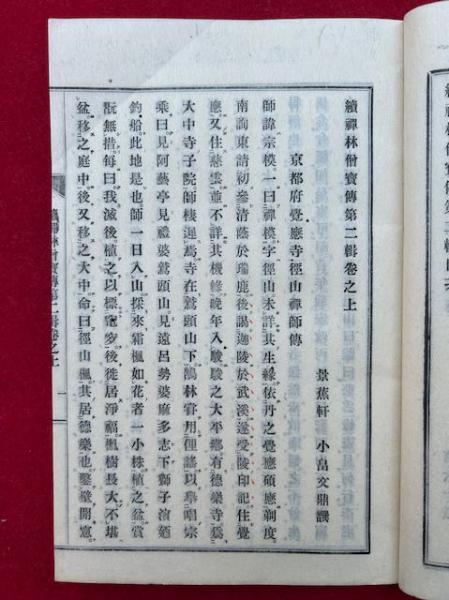 續禪林僧寶傳第二輯卷之上
景蕉軒 小畠文鼎譔
京都府覺應寺徑山禪師傳
師諱宗模一曰禪模字徑山未詳其生緣依丹之覺應碩應剃度
南詢東請初參清蔭於瑞鹿後謁迦陵於武溪遂受陵印記住覺
應又住慈雲並不詳其機修晚年入駿駿之大平鄉有德樂寺爲
大中寺子院師棲遲焉寺在鷲頭山下鵠林嘗用俚謠以擧唱宗
乘曰見阿藝亭見禮婆鷲頭山見遠呂勢婆麻多志下獅子濱廼
釣船此地是也師一日入山探來霜楓如花者一小株植之盆賞
翫無措每曰我滅後植之以標窆矣後徙居淨福楓樹長大不堪
盆移之庭中後又移之大中命曰徑山楓其居德樂也鑿壁開窻
續禪林僧寶傳第二輯卷之上
一